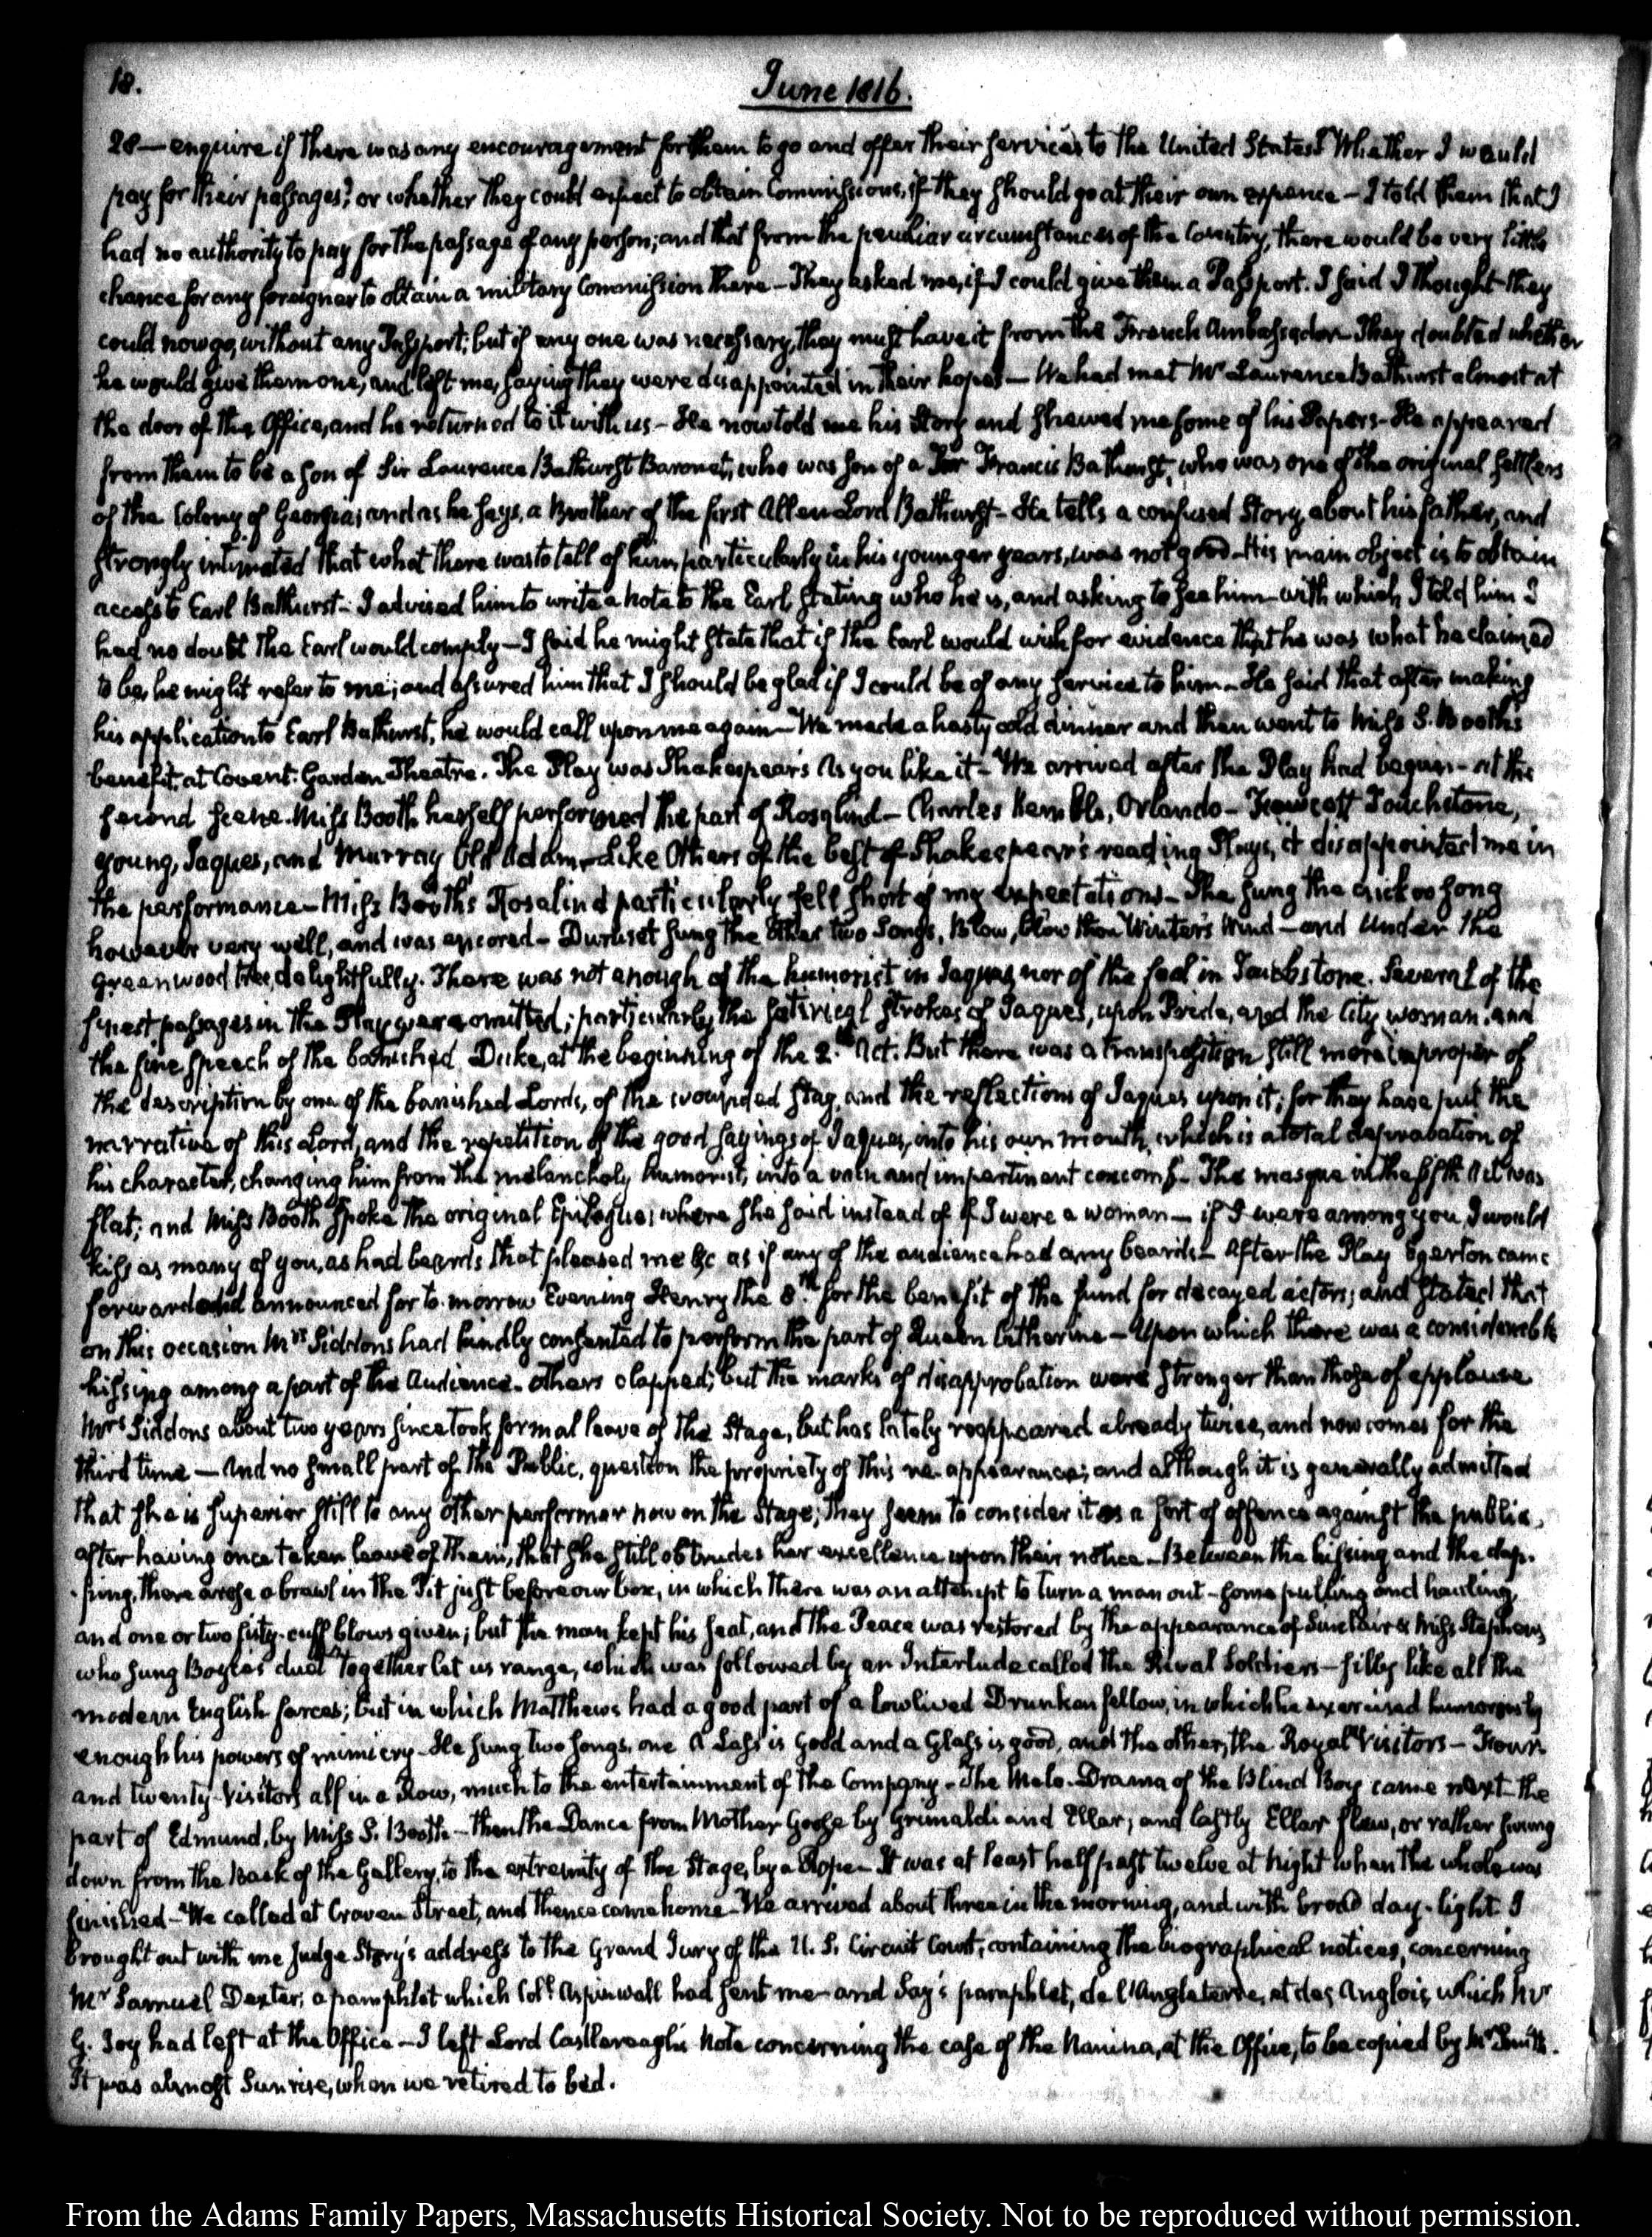 18.
June 1816.
28 — enquire if there was any encouragement for them to go and offer their services to the United States? Whether I would
pay for their passages? or whether they could expect to obtain Commissions, if they should go at their own expence — I told them that I
had no authority to pay for the passage of any person; and that from the peculiar circumstances of the Country, there would be very little
chance for any foreigner to obtain a military Commission there — They asked me, if I could give them a Passport. I said I thought they
could now go, without any Passport; but if any one was necessary, they must have it from the French Ambassador — They doubted whether
he would give them one, and left me, saying they were disappointed in their hopes — We had met Mr Laurence Bathurst almost at
the door of the Office, and he returned to it with us — He now told me his Story and shewed me some of his Papers — He appeared
from them to be a son of Sir Laurence Bathurst Baronet, who was son of a Sir Francis Bathurst, who was one of the original settlers
of the Colony of Georgia; and as he says, a Brother of the first Allen Lord Bathurst — He tells a confused Story, about his father, and
strongly intimated that what there was to tell of him, particularly in his younger years, was not good — His main object is to obtain
access to Earl Bathurst — I advised him to write a note to the Earl, stating who he is, and asking to see him — with which I told him I
had no doubt the Earl would comply — I said he might state that if the Earl would wish for evidence that he was what he claimed
to be, he might refer to me; and assured him that I should be glad if I could be of any service to him — He said that after making
his application to Earl Bathurst, he would call upon me again — We made a hasty cold dinner and then went to Miss S. Booth's
benefit, at Covent-Garden Theatre. The Play was Shakespear's As you like it — We arrived after the Play had begun — at the
second scene. Miss Booth herself performed the part of Rosalind — Charles Kemble, Orlando — Fawcett Touchstone,
Young, Jaques, and Murray Old Adam — Like Others of the best of Shakespear's reading Plays, it disappointed me in
the performance — Miss Booth's Rosalind particularly fell short of my expectations — She sung the cuckoo song
however very well, and was encored — Duruset sung the other two Songs, Blow, blow thou Winter's Wind — and Under the
greenwood tree, delightfully. There was not enough of the humorist in Jaques, nor of the fool in Touchstone. Several of the
finest passages in the Play were omitted; particularly the satirical strokes of Jaques, upon Pride, and the City woman, and
the fine speech of the banished Duke, at the beginning of the 2d Act. But there was a transposition still more improper of
the description by one of the banished Lords, of the wounded stag, and the reflections of Jaques upon it; for they have put the
narrative of this Lord, and the repetition of the good sayings of Jaques, into his own mouth, which is a total depravation of
his character, changing him from the melancholy humorist, into a vain and impertinent coxcomb — The masque in the fifth Act was
flat; and Miss Booth spoke the original Epilogue; where she said instead of if I were a woman — if I were among you I would
kiss as many of you, as had beards that pleased me &c as if any of the audience had any beards — After the Play Egerton came
forward and announced for to-morrow Evening Henry the 8th for the benefit of the fund for decayed actors; and stated that
on this occasion Mrs Siddons had kindly consented to perform the part of Queen Catherine — Upon which there was a considerable
hissing among a part of the Audience. Others clapped; but the marks of disapprobation were stronger than those of applause
Mrs Siddons about two years since took formal leave of the Stage, but has lately reappeared already twice, and now comes for the
third time — And no small part of the Public, question the propriety of this re-appearance; and although it is generally admitted
that she is superior still to any other performer now on the Stage, they seem to consider it as a sort of offence against the public,
after having once taken leave of them, that she still obtrudes her excellence upon their notice — Between the hissing and the clap-
ping, there arose a brawl in the Pit just before our box, in which there was an attempt to turn a man out — some pulling and hauling,
and one or two fisty-cuff blows given; but the man kept his seat, and the Peace was restored by the appearance of Sinclair & Miss Stephens
who sung Boyce's duet "Together let us range, which was followed by an Interlude called the Rival Soldiers — silly like all the
modern English farces; but in which Matthews had a good part of a lowlived Drunken fellow, in which he exercised humorously
enough his powers of mimicry — He sung two songs, one A Lass is good and a Glass is good, and the other, the Royal Visitors — Four
and twenty Visitors all in a Row, much to the entertainment of the Company — The Melo-Drama of the Blind Boy came next — the
part of Edmund, by Miss S. Booth — then the Dance from Mother Goose by Grimaldi and Ellar; and lastly Ellar flew, or rather swung
down from the back of the Gallery, to the extremity of the Stage, by a Rope — It was at least half past twelve at Night when the whole was
finished — We called at Craven Street, and thence came home — We arrived about three in the morning, and with broad day-light. I
brought out with me Judge Story's address to the Grand Jury of the U. S. Circuit Court, containing the biographical notices, concerning
Mr Samuel Dexter; a pamphlet which Coll Aspinwall had sent me — and Say's pamphlet, de l'Angleterre, et des Anglois, which Mr
G. Joy had left at the Office — I left Lord Castlereagh's Note concerning the case of the Nanina, at the Office, to be copied by Mr Smith.
It was almost Sunrise, when we retired to bed.
From the Adams Family Papers, Massachusetts Historical Society. Not to be reproduced without permission.